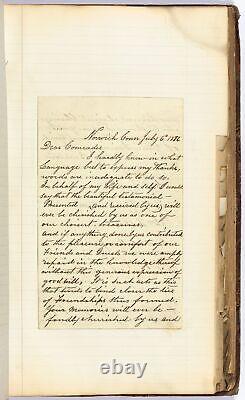 Norwich Conn July 6th 1882
Dear Comrades
I hardly know in what
Language best to express my thanks,
words are inadequate to do so.
In behalf of my Wife and Self I would
say that the beautiful testimonial
Presented and received by us, will
ever be cherished by us as one of
our choicest treasures.
and if anything done by us contributed
to the pleasure or comfort of our
Friends and Guests we were amply
repaid in the knowledge thereof
without this generous expression of
good will. It is such acts as this
that tends to bind closer the ties
of Friendships thus formed.
Your Memories will ever be
fondly cherished by us and